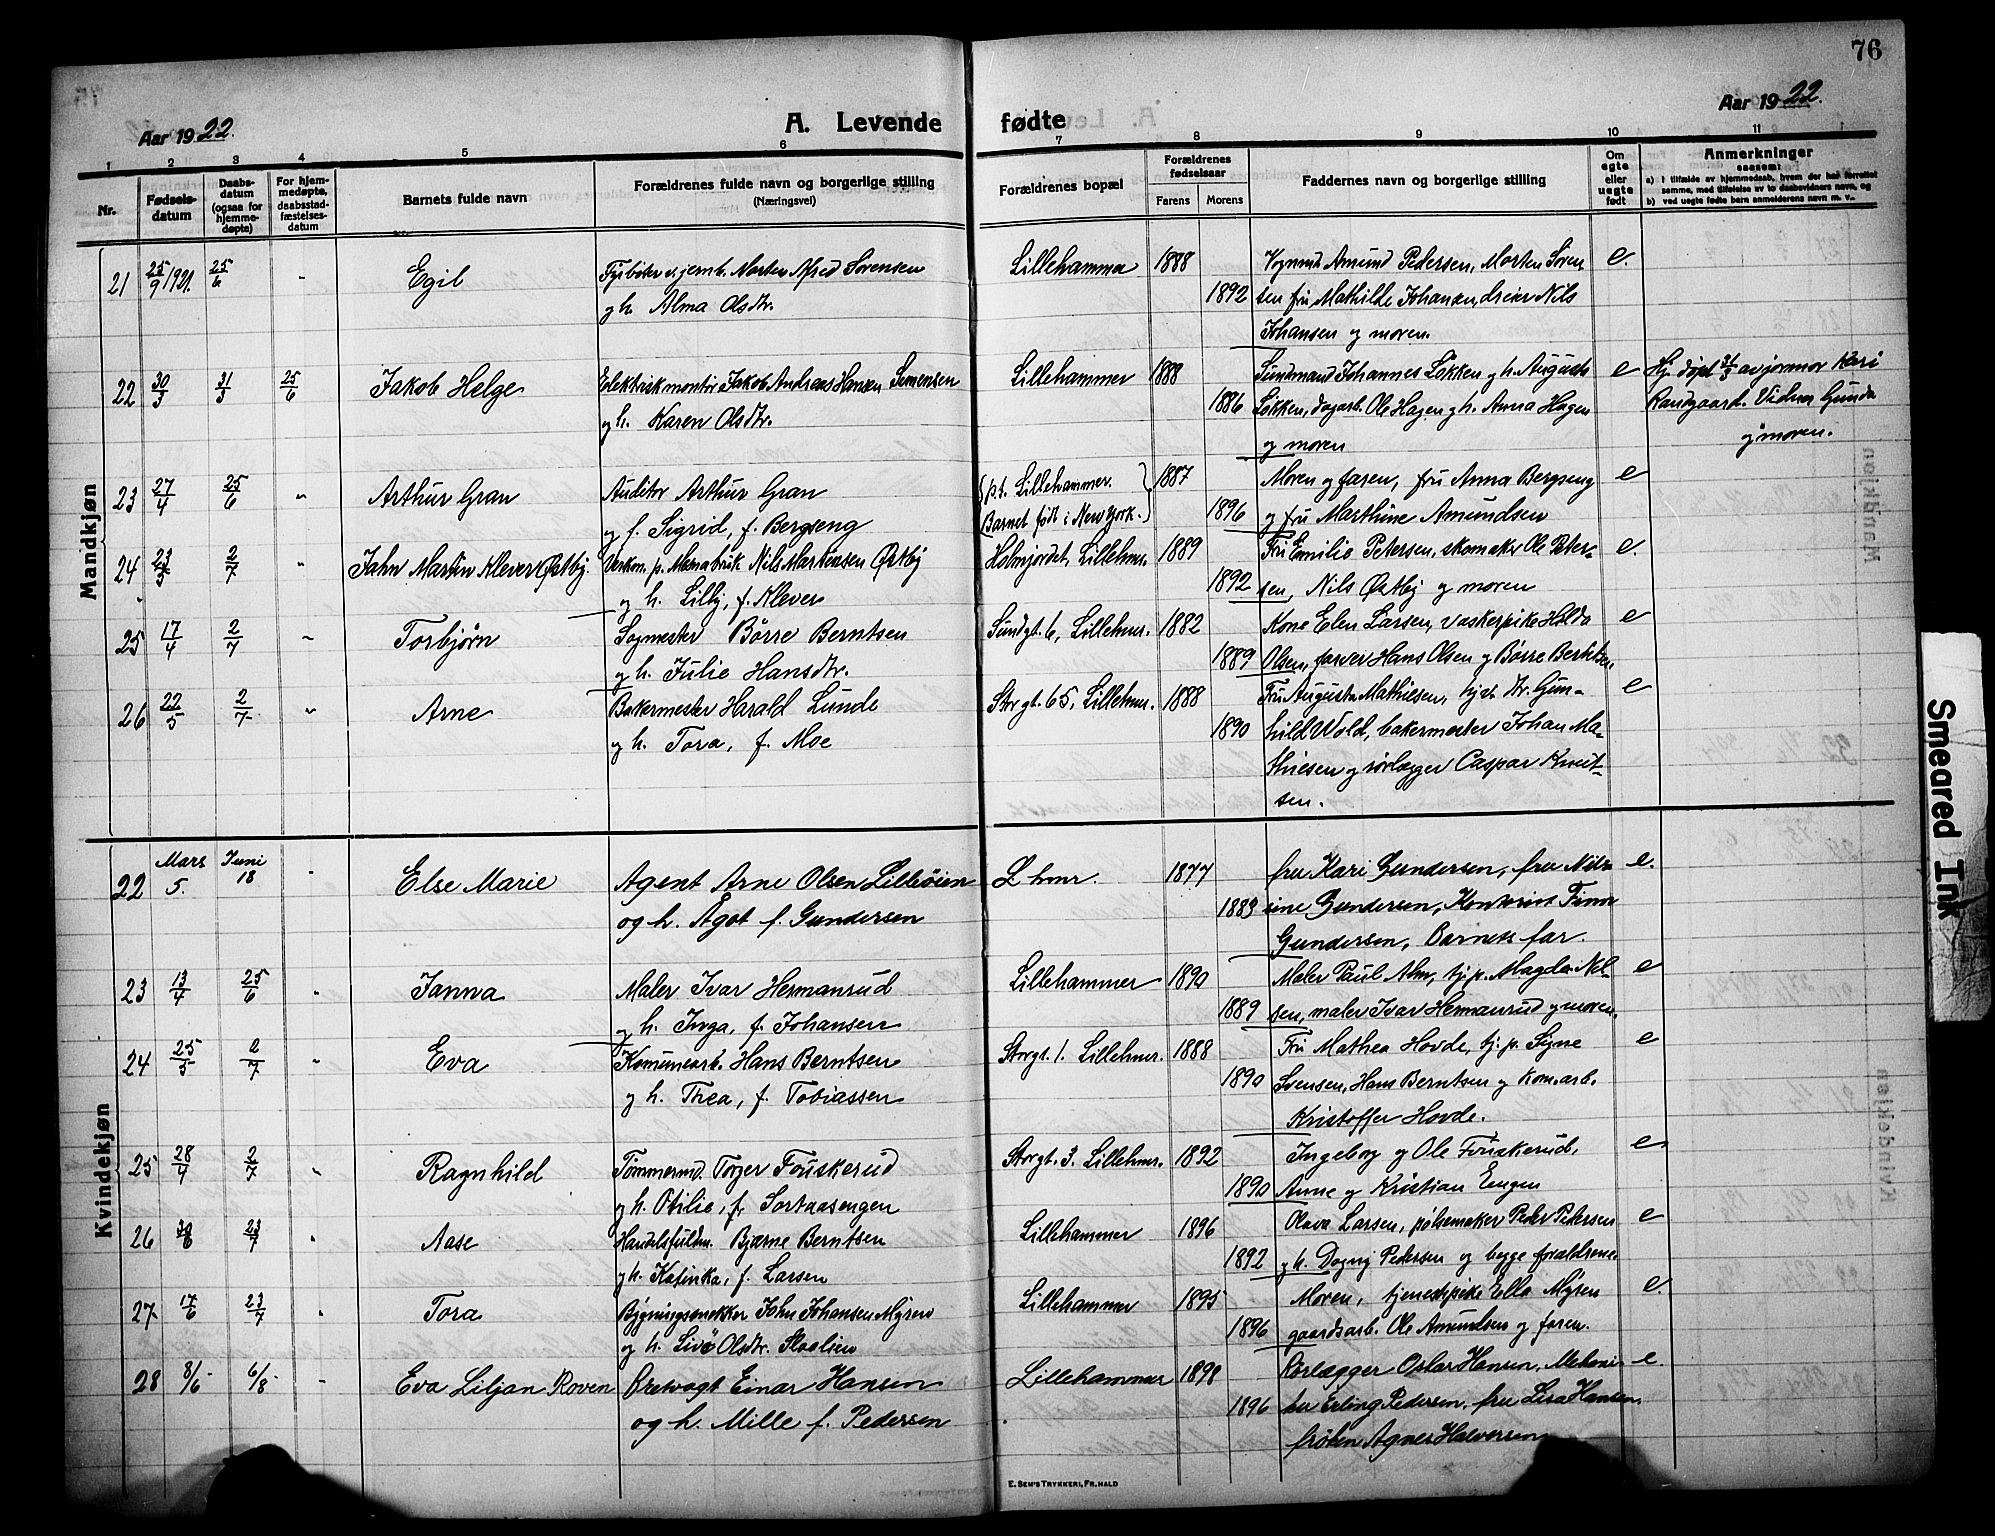 76
Aar 1922.
A. Levende fødte
Aar 1922.
1 2 3 4 5 6 7 8 9 10 11
Nr.
Fødsels-
datum
Daabs-
datum
(ogsaa for
hjemme-
døpte)
For hjem-
medøpte,
daabsstad-
fæstelses-
datum
Barnets fulde navn
Forældrenes fulde navn og borgerlige stilling
(Næringsvei)
Forældrenes bopæl
Forældrenes
fødselsaar
Farens Morens
Faddernes navn og borgerlige stilling
Om
egte
eller
uegte
født
Anmerkninger
saasom:
a) i tilfælde av hjemmedaab, hvem der har forrettet
samme, med tilføielse av to daabsvidners navn, og
b) ved uegte fødte barn anmelderens navn m. v.
Mandkjøn
21 25/9 1921. 25/6 - Egil
Fyrbøter v. jernb. Morten Alfred Sørensen
og h. Alma Olsdtr.
Lillehammer 1888
1892
Vognmd. Amund Pedersen, Morten Søren-
sen, fru Mathilde Johansen, dreier Nils
Johansen og moren.
e.
22 30/3 31/3 25/6 Jakob Helge
Elektriskmontør Jakob Andreas Hansen Simensen
og h. Karen Olsdtr.
Lillehammer 1888
1886
Sundmand Johannes Løkken og h. Augusta
Løkken, dagarb. Ole Hagen og h. Anna Hagen
og moren
e
Hj. døpt 31/3 av jormor Kari
Randgaard. Vidner Gunda
og moren.
23 27/4 25/6 " Arthur Gran
Auditor Arthur Gran
og f. Sigrid, f. Bergseng
p.t. Lillehammer.
Barnet født i New York.
1887
1896
Moren og faren, fru Anna Bergseng
og fru Marthine Amundsen
e
24 23/3 2/7 " Jahn Martin Klever Østby.
Verkm. p. Mesnabruk Nils Martinsen Østby
og h. Lilly, f. Klever
Holmjordet, Lillehmr. 1889
1892
Fru Emilie Petersen, skomaker Ole Peter-
sen, Nils Østby og moren
e.
25 17/4 2/7 " Torbjørn
Sagmester Børre Berntsen
og h. Julie Hansdtr.
Sundgt. 6, Lillehmr. 1882
1889
Kone Elen Larsen, vaskerpike Hilda
Olsen, farver Hans Olsen og Børre Berntsen
e
26 22/5 2/7 " Arne
Bakermester Harald Lunde
og h. Tora, f. Moe
Storgt. 65, Lillehmr. 1888
1890
Fru Augusta Mathiesen, hjst. Fr. Gun-
hild Wold, bakermester Johan Ma-
thiesen og rørlægger Caspar Knut-
sen.
e
Kvindekjøn
22 Mars 5. Juni 18 - Else Marie
Agent Arne Olsen Lilleøien
og h. Ågot f. Gundersen
L hmr. 1877
1883
fru Kari Gundersen, fru Niko-
line Gundersen, Kontorist Finn
Gundersen, Barnets far.
e.
23 13/4 25/6 " Janna
Maler Ivar Hermanrud
og h. Inga, f. Johansen
Lillehammer 1890
1889
Maler Paul Alm, tj.p. Magda Nil-
sen, maler Ivar Hermanrud og moren.
e
24 25/5 2/7 " Eva
Komunearb. Hans Berntsen
og h. Thea, f. Tobiassen
Storgt. 1. Lillehmr. 1888
1890
Fru Mathea Hovde, tj. p. Signe
Svensen, Hans Berntsen og Kom.arb.
Kristoffer Hovde.
e
25 28/4 2/7 " Ragnhild
Tømmermd. Torger Fouskerud
og h. Otilie, f. Sortaasengen
Storgt. 3. Lillehmr. 1892
1890
Ingeborg og Ole Fouskerud,
Anne og Kristian Engen
e
26 30/6 23/7 " Aase
Handelsfuldm. Bjarne Berntsen
og h. Katinka, f. Larsen
Lillehammer 1896
1892
Olava Larsen, pølsemaker Peder Pedersen
og h. Dagny Pedersen og begge forældrene.
e
27 17/6 23/7 " Tora
Bygningssnekker John Johansen Myren
og h. Live Olsdtr. Slaalien
Lillehammer 1895
1896
Moren, tjenestepike Ella Myren
gaardsarb. Ole Amundsen og faren.
e.
28 8/6 6/8 - Eva Liljan Roven
Øretvagt Einar Hansen
og h. Mille f. Pedersen
Lillehammer 1898
1896
Rørlægger Oskar Hansen, Mekani-
ker Erling Pedersen, fru Lisa Hansen,
frøken Agnes Halvorsen
e.
E. SEM'S TRYKKERI, FR.HALD
Smeared Ink